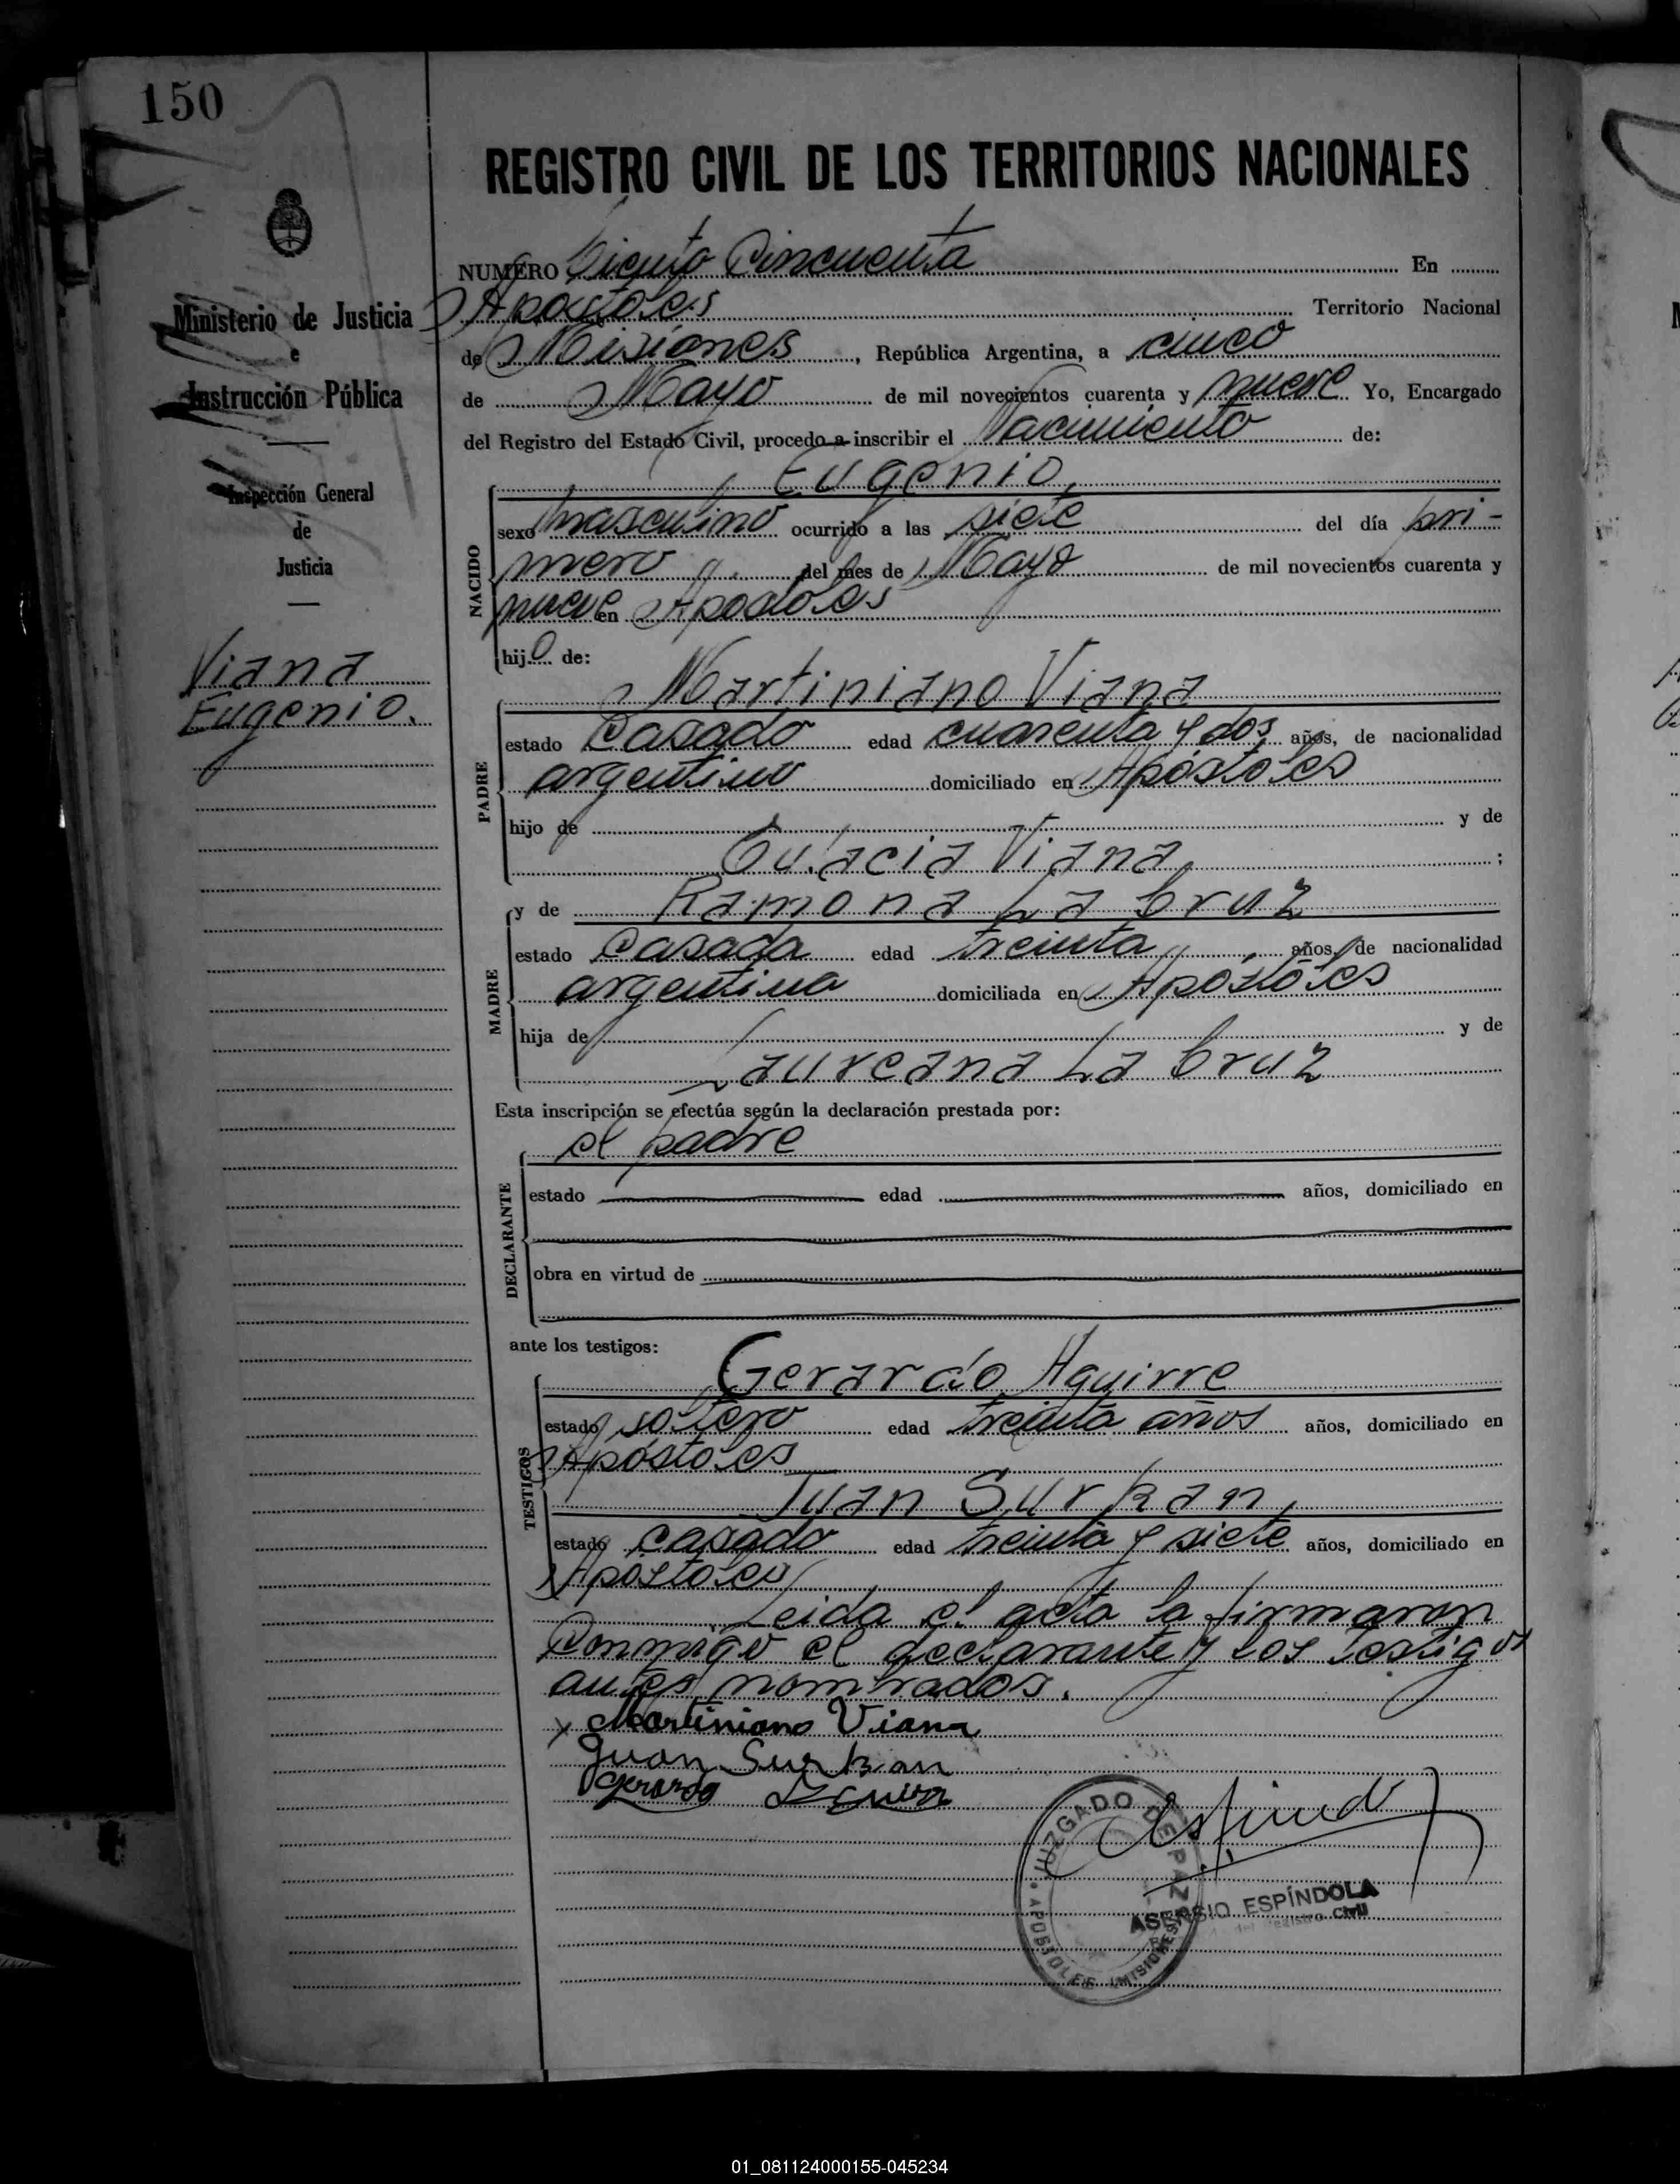 150
REGISTRO CIVIL DE LOS TERRITORIOS NACIONALES
Ministerio de Justicia
e
Instrucción Pública
Inspección General
de
Justicia
Viana
Eugenio.
NUMERO Ciento Cincuenta En
Apóstoles Territorio Nacional
de Misiones, República Argentina, a cinco
de Mayo de mil novecientos cuarenta y nueve Yo, Encargado
del Registro del Estado Civil, procedo a inscribir el Nacimiento de:
Eugenio,
NACIDO
sexo masculino ocurrido a las siete del día pri-
mero del mes de Mayo de mil novecientos cuarenta y
nueve en Apóstoles
hijo de:
Martiniano Viana
PADRE
estado Casado edad cuarenta y dos años, de nacionalidad
argentino domiciliado en Apóstoles
hijo de y de
Viana, ;
y de Ramona La Cruz
MADRE
estado Casada edad treinta años, de nacionalidad
argentina domiciliada en Apóstoles
hija de y de
Laureana La Cruz
Esta inscripción se efectúa según la declaración prestada por:
el padre
DECLARANTE
estado edad años, domiciliado en
obra en virtud de
ante los testigos:
TESTIGOS
Gerardo Aguirre
estado soltero edad treinta años años, domiciliado en
Apóstoles
Juan Surkan,
estado casado edad treinta y siete años, domiciliado en
Apóstoles
Leida el acta la firmaron
Conmigo el declarante y los testigos
antes nombrados.
x Martiniano Viana
Juan Surkan
Gerardo
JUZGADO DE PAZ
APOSTOLES (MISIONES)
ASENSIO ESPÍNDOLA
del Registro Civil
01_081124000155-045234